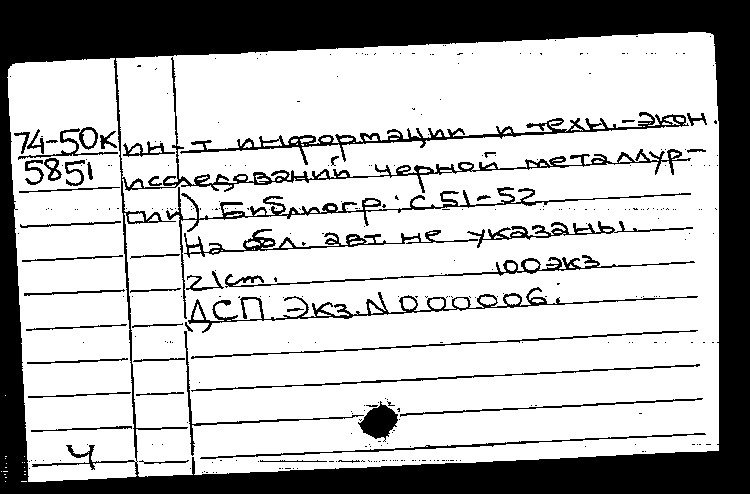 74-50к ин-т информации и техн.-экон.
5851 исследований черной металлур-
гии). Библиогр.: с.51-52.
На обл. авт. не указаны.
21cm. 100 экз.
ДСП. Экз. N 000006.
Ч